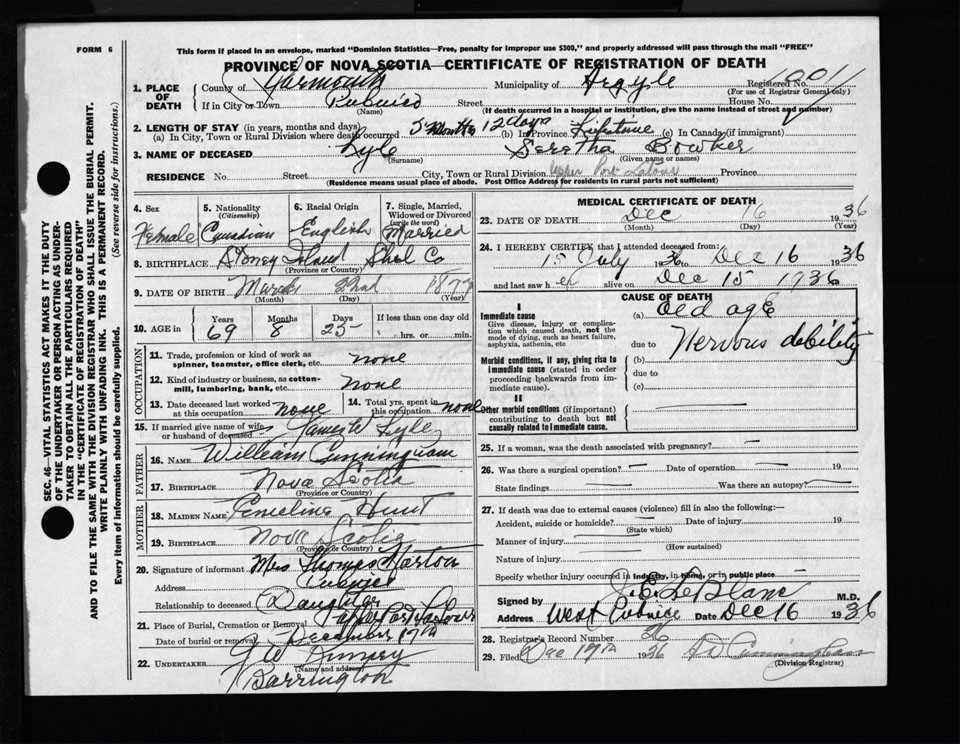 FORM 6
This form if placed in an envelope, marked "Dominion Statistics—Free, penalty for improper use $300," and properly addressed will pass through the mail "FREE"
PROVINCE OF NOVA SCOTIA—CERTIFICATE OF REGISTRATION OF DEATH
1. PLACE OF DEATH
County of Yarmouth Municipality of Argyle Registered No.
(For use of Registrar General only)
If in City or Town Pubnico Street House No.
(Name) (If death occurred in a hospital or institution, give the name instead of street and number)
2. LENGTH OF STAY (in years, months and days)
(a) In City, Town or Rural Division where death occurred 5 Months 12 days (b) In Province Lifetime (c) In Canada (if immigrant)
3. NAME OF DECEASED Lyle Seretha Bowker
(Surname) (Given name or names)
RESIDENCE No. Street City, Town or Rural Division Upper Port Latour Province
(Residence means usual place of abode. Post Office Address for residents in rural parts not sufficient)
4. Sex Female
5. Nationality (Citizenship) Canadian
6. Racial Origin English
7. Single, Married, Widowed or Divorced (write the word) Married
8. BIRTHPLACE Stoney Island Shel Co
(Province or Country)
9. DATE OF BIRTH March 22nd
(Month) (Day) (Year)
10. AGE in Years Months Days If less than one day old
69 8 25 hrs. or min.
OCCUPATION
11. Trade, profession or kind of work as spinner, teamster, office clerk, etc. none
12. Kind of industry or business, as cotton-mill, lumbering, bank, etc. None
13. Date deceased last worked at this occupation none
14. Total yrs. spent in this occupation none
15. If married give name of wife or husband of deceased James W Lyle
FATHER
16. NAME William Cunningham
17. BIRTHPLACE Nova Scotia
(Province or Country)
MOTHER
18. MAIDEN NAME Emeline Hunt
19. BIRTHPLACE Nova Scotia
(Province or Country)
20. Signature of informant Mrs Thomas
Address Pubnico
Relationship to deceased Daughter
21. Place of Burial, Cremation or Removal Upper Port Latour
Date of burial or removal December 17th
22. UNDERTAKER
(Name and address)
Barrington
MEDICAL CERTIFICATE OF DEATH
23. DATE OF DEATH Dec 16 1936
(Month) (Day) (Year)
24. I HEREBY CERTIFY that I attended deceased from:
15 July 1936 to Dec 16 1936
and last saw her alive on Dec 15 1936
CAUSE OF DEATH
I
Immediate cause
Give disease, injury or complication which caused death, not the mode of dying, such as heart failure, asphyxia, asthenia, etc
(a) old age
due to Nervous debility
Morbid conditions, if any, giving rise to immediate cause (stated in order proceeding backwards from immediate cause).
(b)
due to
(c)
II
Other morbid conditions (if important) contributing to death but not causally related to immediate cause.
25. If a woman, was the death associated with pregnancy?
26. Was there a surgical operation? Date of operation 19
State findings Was there an autopsy?
27. If death was due to external causes (violence) fill in also the following:—
Accident, suicide or homicide? Date of injury 19
(State which)
Manner of injury
(How sustained)
Nature of injury
Specify whether injury occurred in industry, in home, or in public place
Signed by J. E. LeBlanc M.D.
Address West Pubnico Date Dec 16 1936
28. Registrar's Record Number 26
29. Filed Dec 19th 1936 Cunningham
(Division Registrar)
SEC. 46—VITAL STATISTICS ACT MAKES IT THE DUTY
OF THE UNDERTAKER OR PERSON ACTING AS UNDER-
TAKER TO OBTAIN ALL THE PARTICULARS REQUIRED
IN THE "CERTIFICATE OF REGISTRATION OF DEATH"
AND TO FILE THE SAME WITH THE DIVISION REGISTRAR WHO SHALL ISSUE THE BURIAL PERMIT.
WRITE PLAINLY WITH UNFADING INK. THIS IS A PERMANENT RECORD.
Every item of information should be carefully supplied. (See reverse side for instructions.)